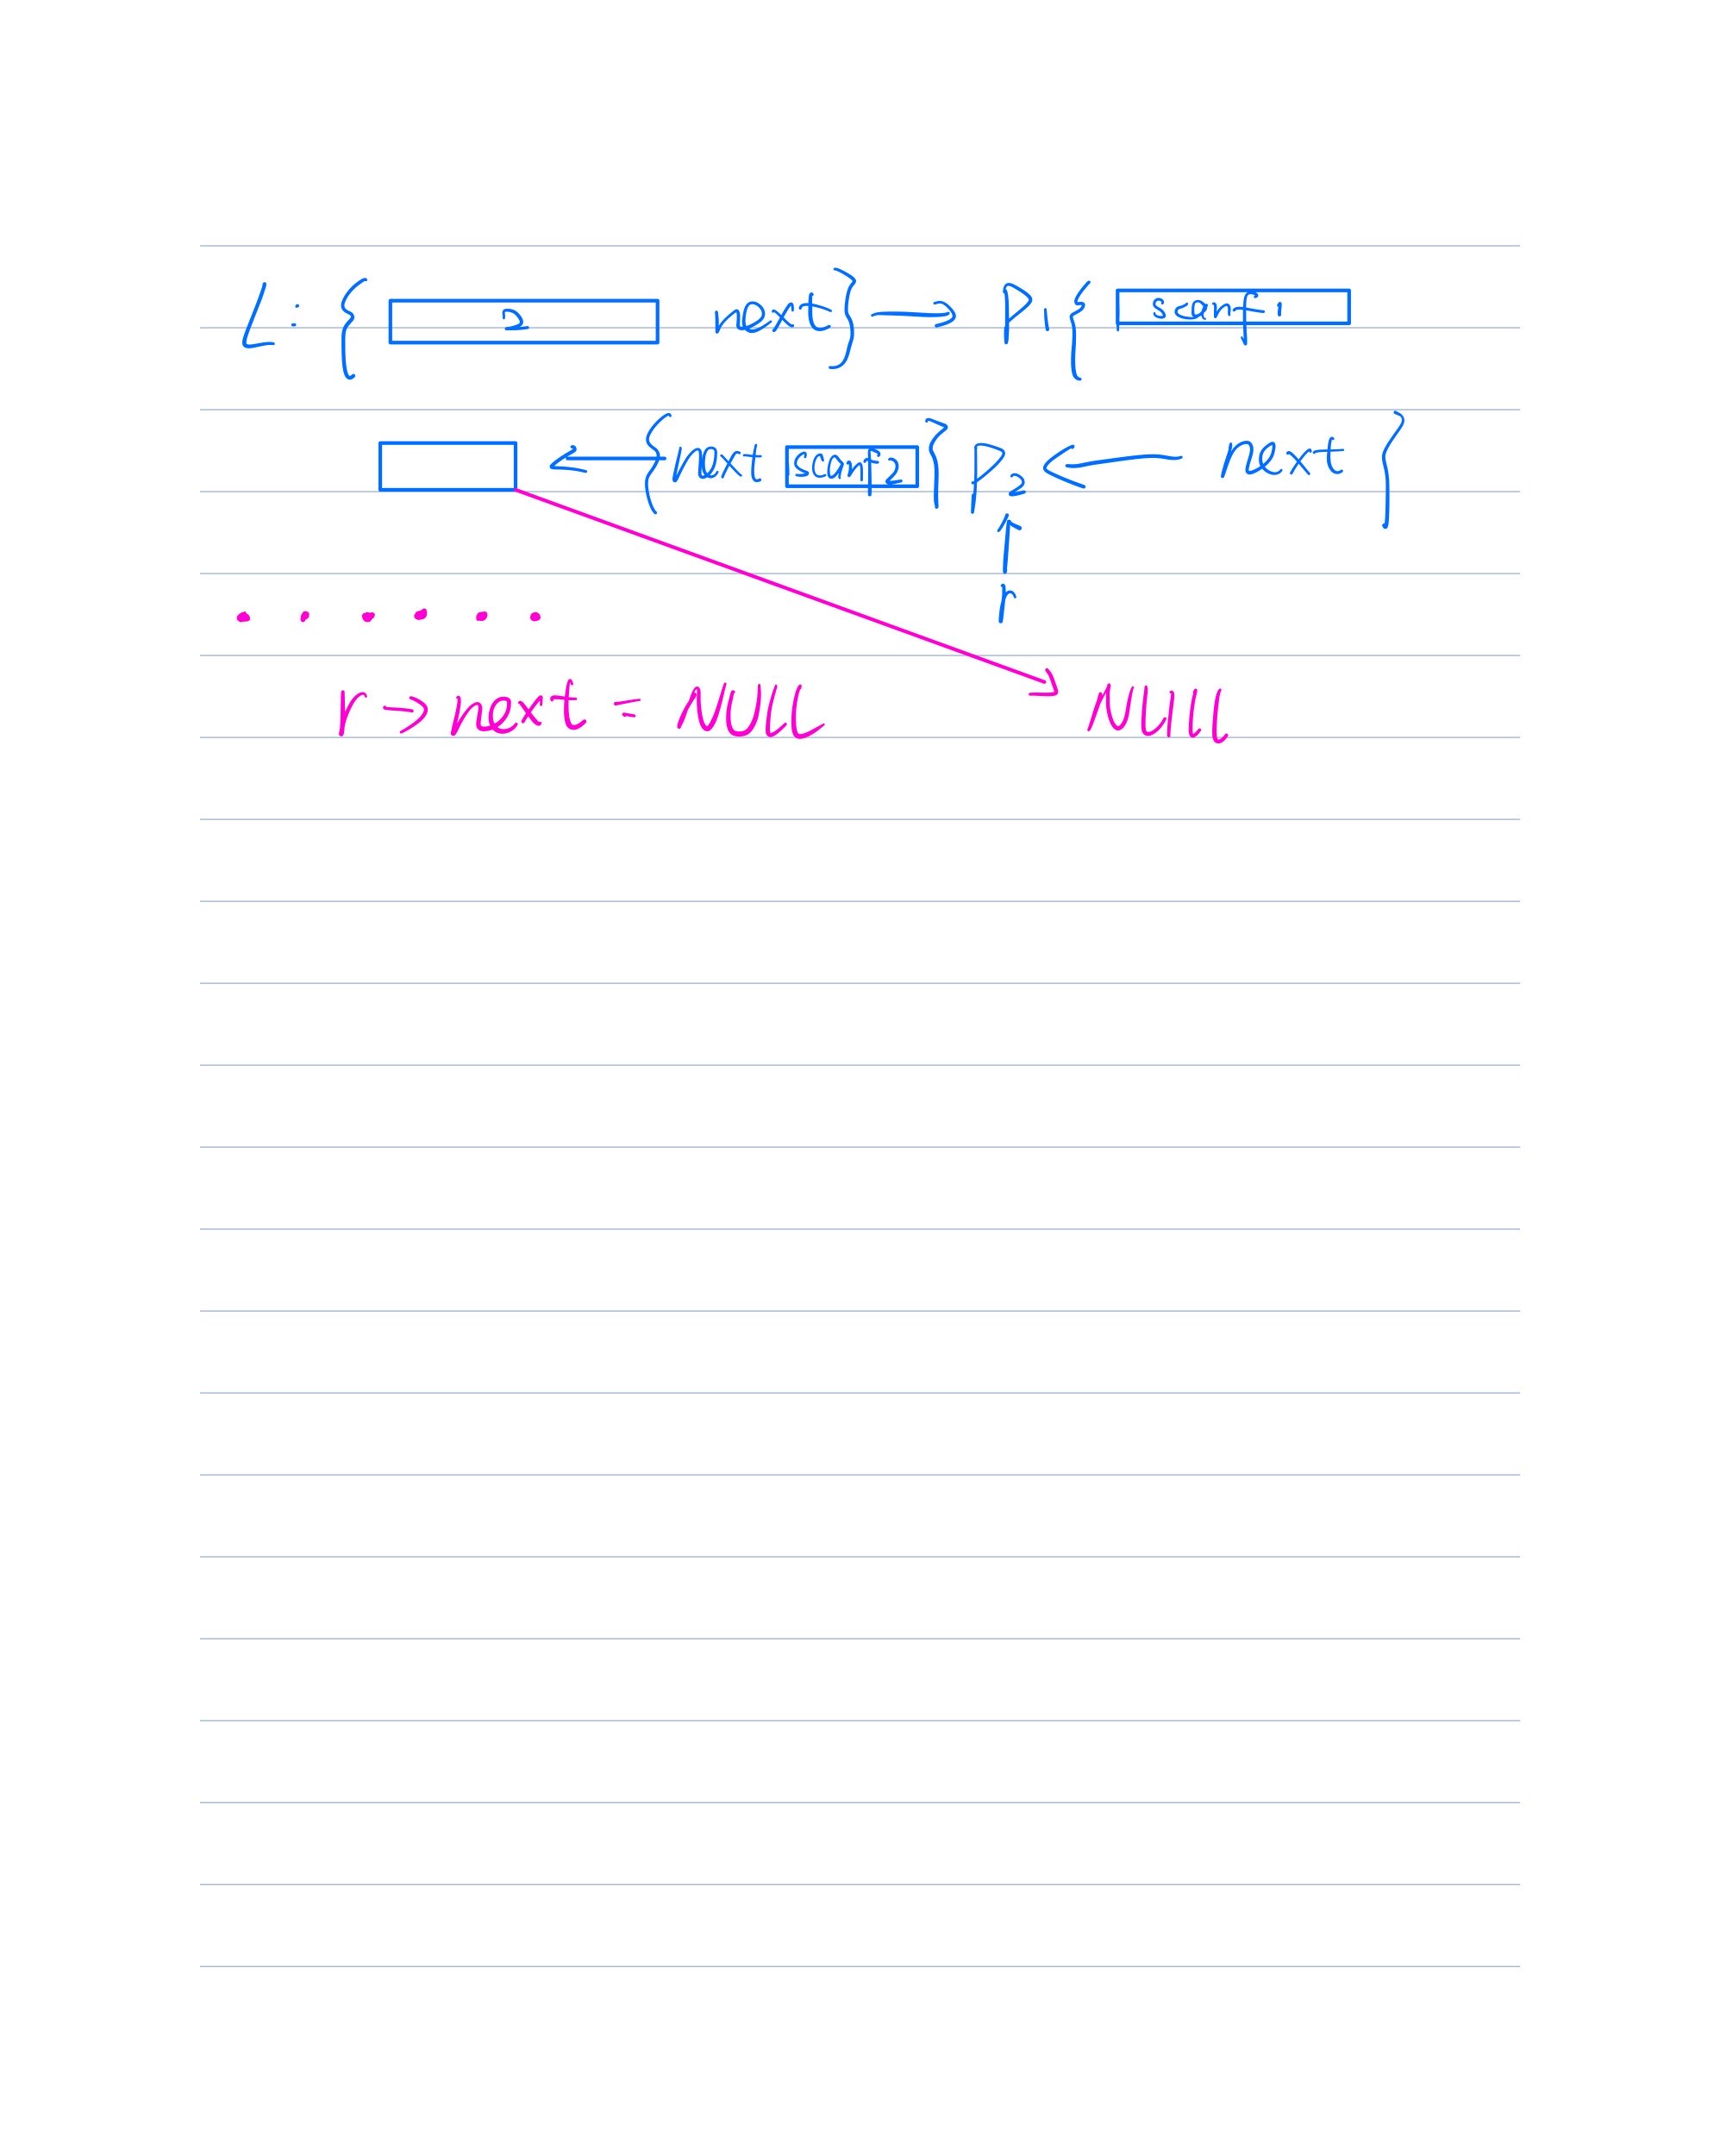 L: { next } → P1 { scanf1
← { next scanf2 } P2 ← next }
r
......
r->next = NULL NULL